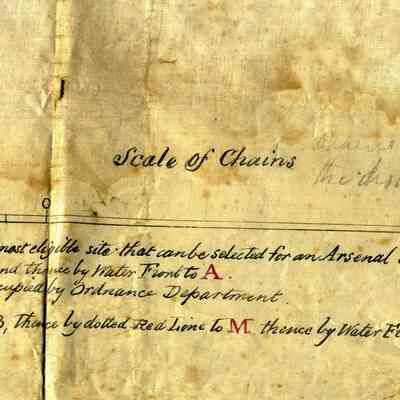 Scale of Chains
the
0
most eligible site that can be selected for an Arsenal
and thence by Water Front to A.
cupied by Ordnance Department.
B, Thence by dotted Red Line to M thence by Water